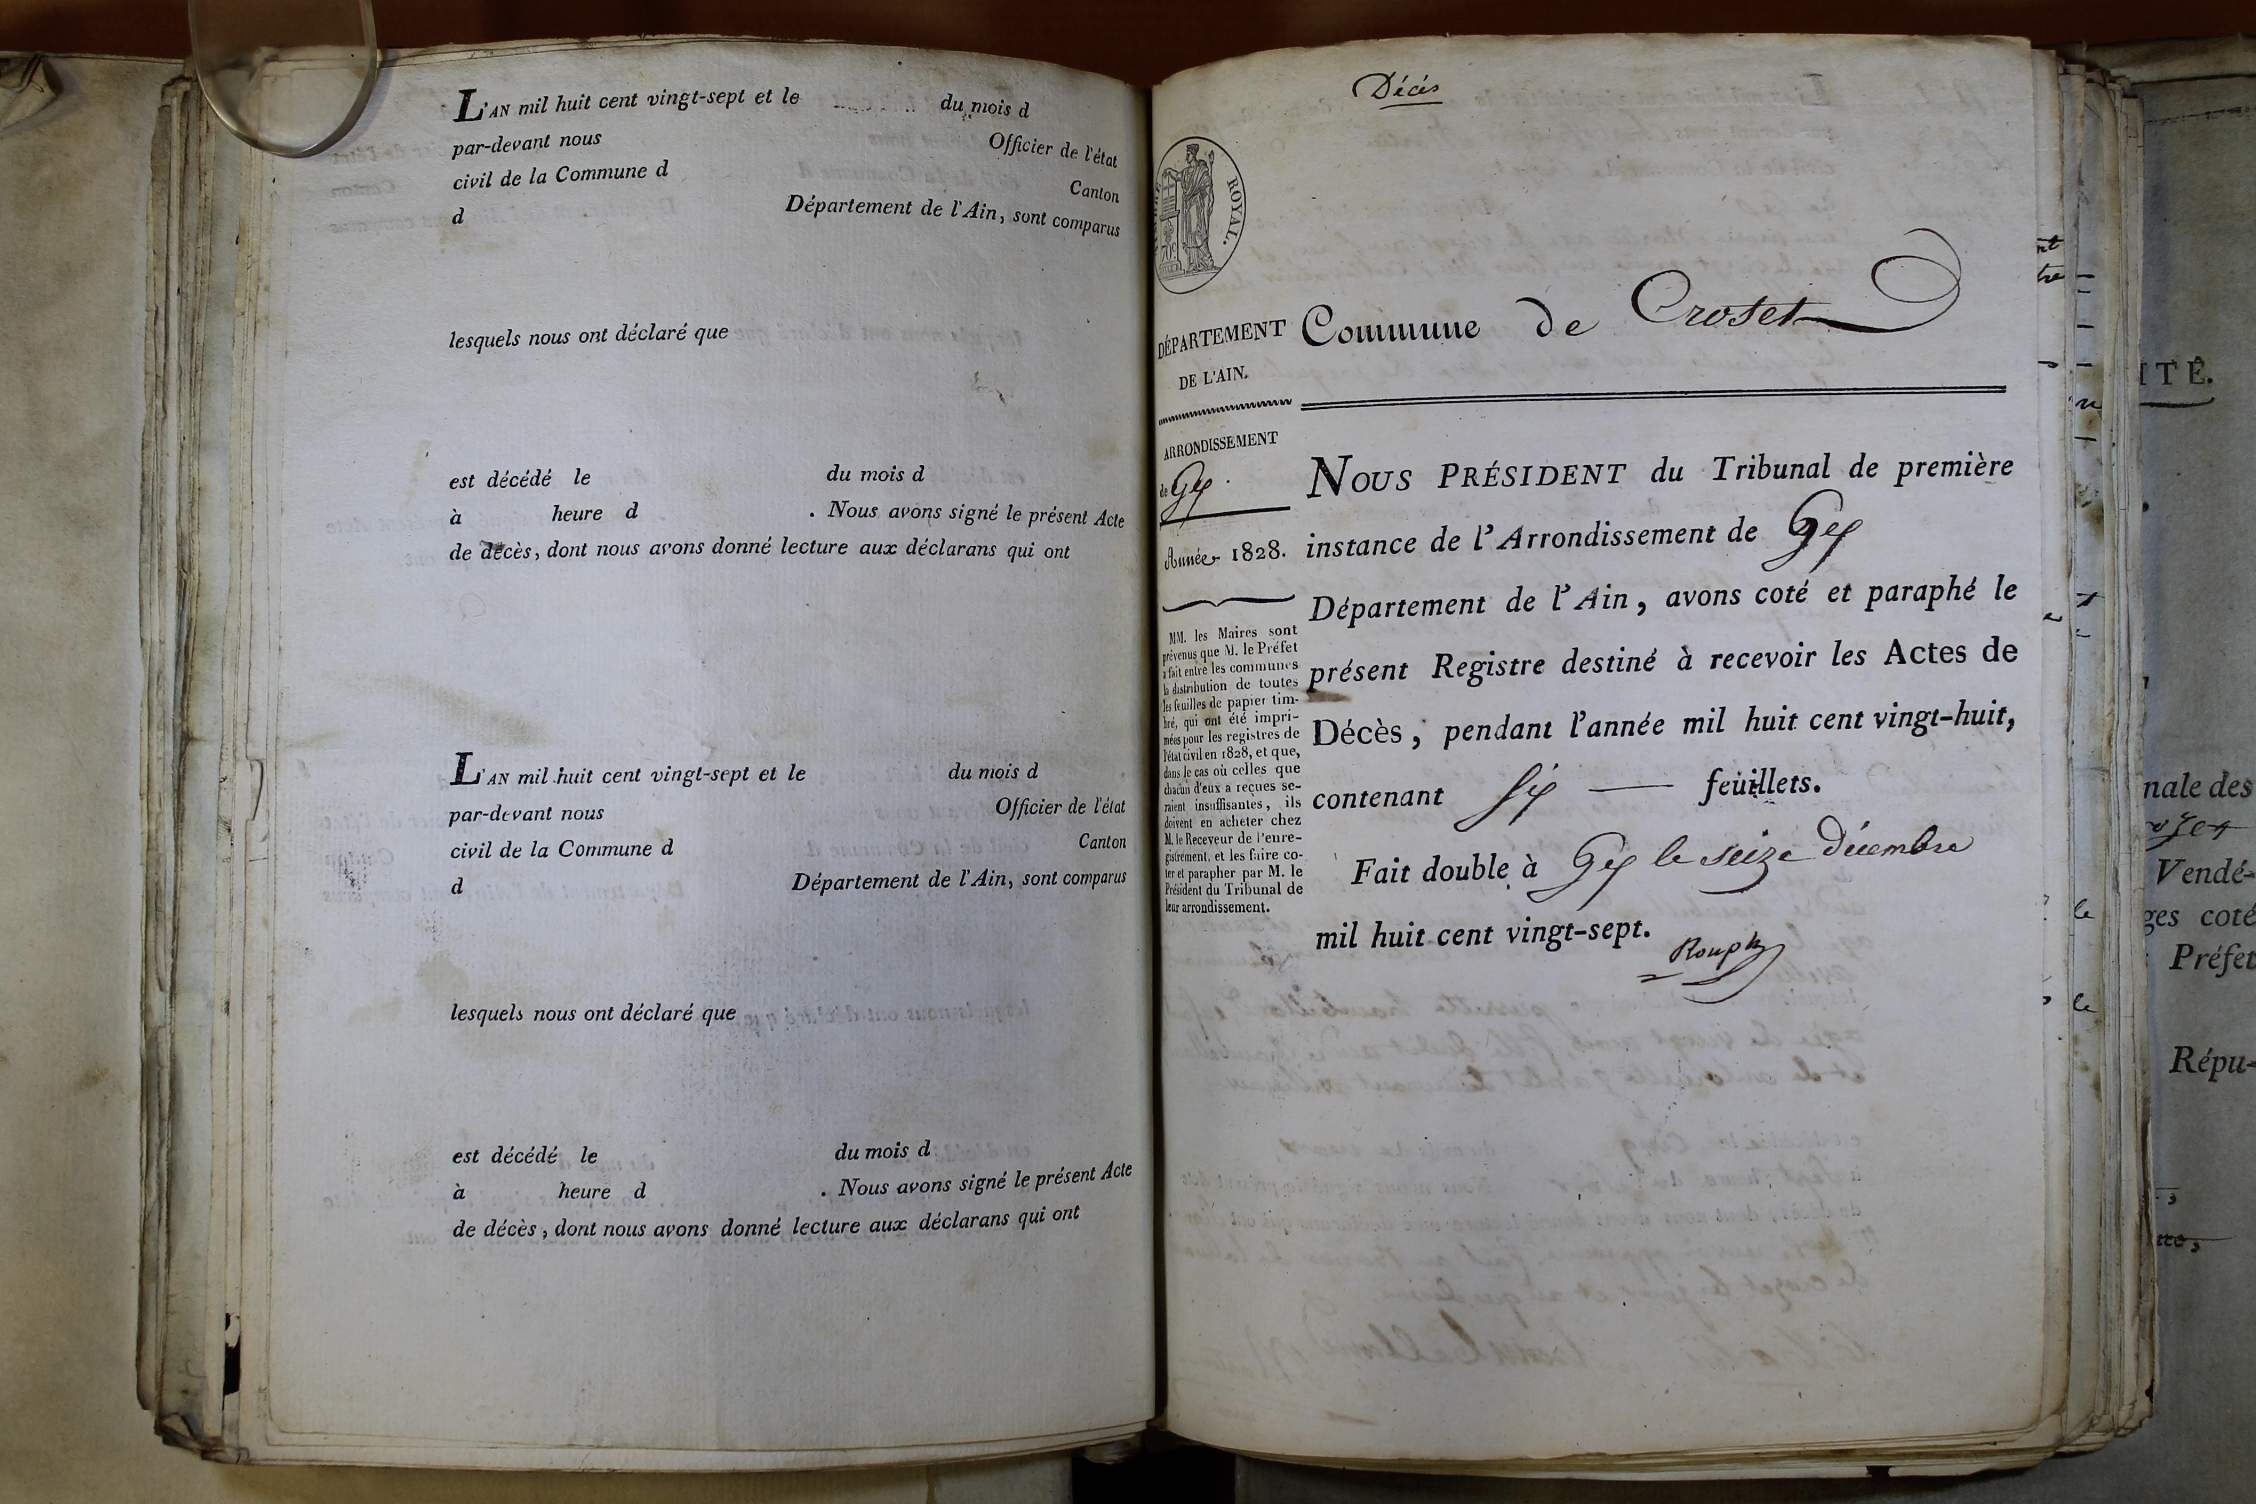 L'AN mil huit cent vingt-sept et le du mois d
par-devant nous Officier de l'état
civil de la Commune d Canton
d Département de l'Ain, sont comparus
lesquels nous ont déclaré que
est décédé le du mois d
à heure d . Nous avons signé le présent Acte
de décès, dont nous avons donné lecture aux déclarans qui ont
L'AN mil huit cent vingt-sept et le du mois d
par-devant nous Officier de l'état
civil de la Commune d Canton
d Département de l'Ain, sont comparus
lesquels nous ont déclaré que
est décédé le du mois d
à heure d . Nous avons signé le présent Acte
de décès, dont nous avons donné lecture aux déclarans qui ont
Décès
ROYAL.
DÉPARTEMENT
DE L'AIN.
ARRONDISSEMENT
de Gex
Année 1828.
MM. les Maires sont
prévenus que M. le Préfet
a fait entre les communes
la distribution de toutes
les feuilles de papier tim-
bré, qui ont été impri-
mées pour les registres de
l'état civil en 1828, et que,
dans le cas où celles que
chacun d'eux a reçues se-
raient insuffisantes, ils
doivent en acheter chez
M. le Receveur de l'enre-
gistrement, et les faire co-
ter et parapher par M. le
Président du Tribunal de
leur arrondissement.
Commune de Croset
NOUS PRÉSIDENT du Tribunal de première
instance de l'Arrondissement de Gex
Département de l'Ain, avons coté et paraphé le
présent Registre destiné à recevoir les Actes de
Décès, pendant l'année mil huit cent vingt-huit,
contenant six feuillets.
Fait double à Gex le seize décembre
mil huit cent vingt-sept.
ITÉ.
nale des
Vendé-
ges coté
Préfet
Répu-